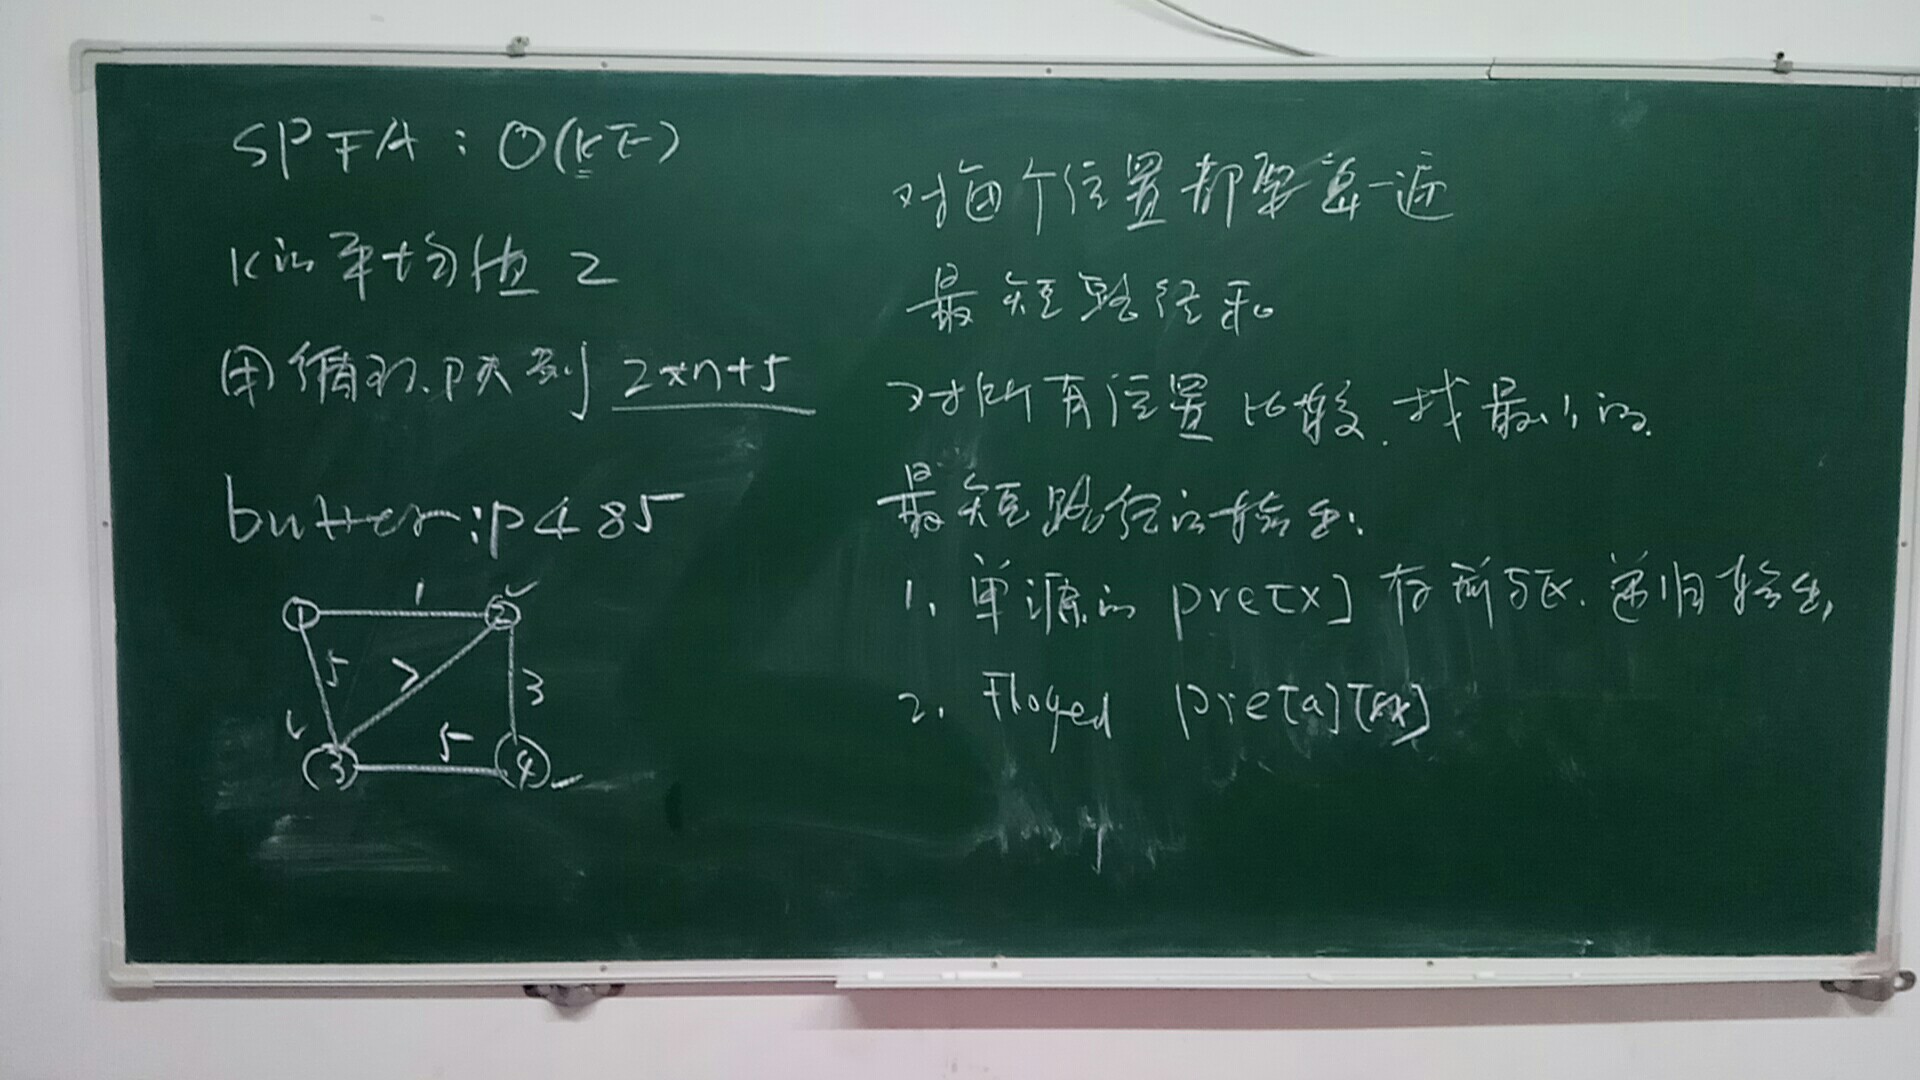 SPFA : O(kE)
K的平均值 2
用循环队列 2×n+5
butter:p485
1
① ②
5 7 3
5
③ ④
对每个位置都要算一遍
最短路径和
对所有位置比较.找最小的.
最短路径的输出:
1. 单源的 pre[x] 存前驱.递归输出,
2. Floyed pre[a][x]